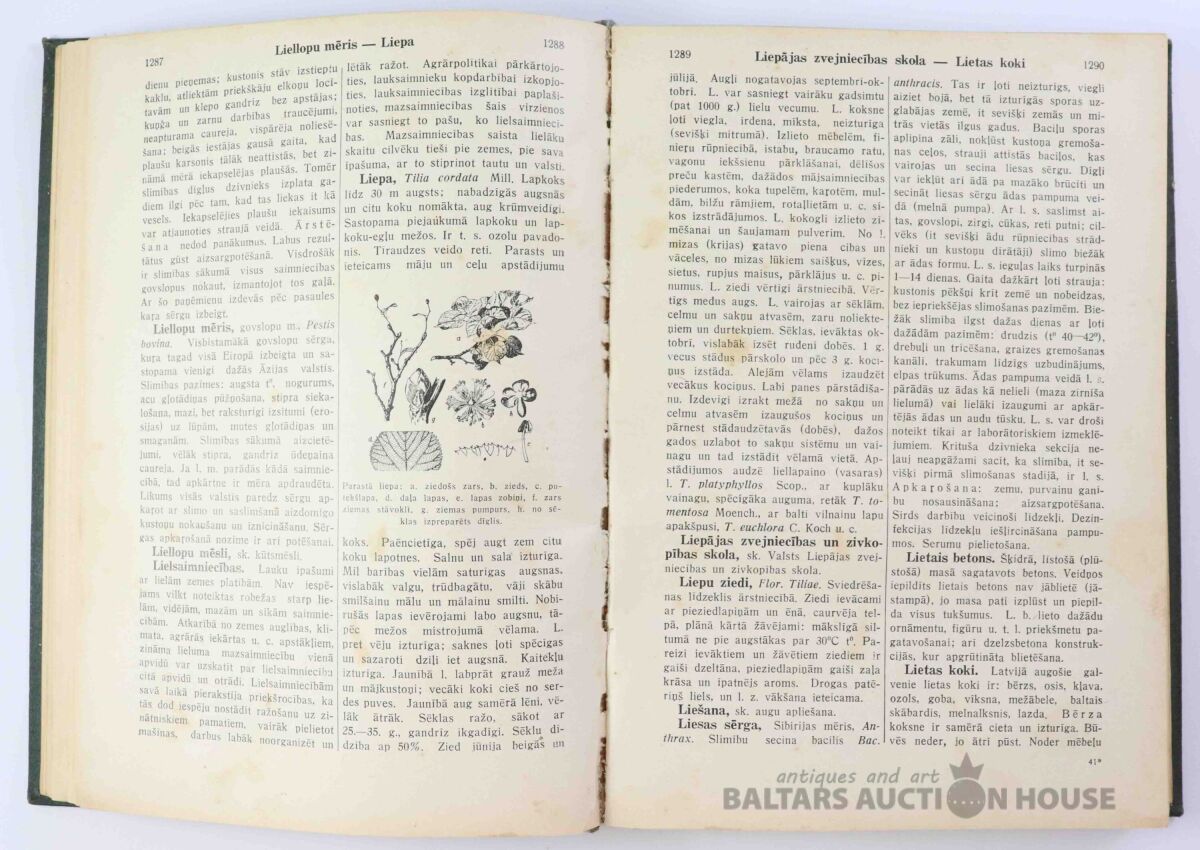 1287
Liellopu mēris — Liepa
1288
dienu pieņemas; kustonis stāv izstieptu
kaklu, atliektām priekškāju elkoņu locī-
tavām un klepo gandrīz bez apstājas;
kuņģa un zarnu darbības traucējumi,
neapturama caureja, vispārēja noliesē-
šana; beigās iestājas gausā gaita, kad
plaušu karsonis tālāk neattīstās, bet zi-
nāmā mērā iekapsēlējas plaušās. Tomēr
slimības dīgļus dzīvnieks izplata ga-
diem ilgi pēc tam, kad tas liekas it kā
vesels. Iekapsēlējies plaušu iekaisums
var atjaunoties straujā veidā. Ārstē-
šana nedod panākumus. Labus rezul-
tātus gūst aizsargpotēšanā. Visdrošāk
ir slimības sākumā visus saimniecības
govslopus nokaut, izmantojot tos gaļā.
Ar šo paņēmienu izdevās pēc pasaules
kaŗa sērgu izbeigt.
Liellopu mēris, govslopu m., Pestis
bovina. Visbīstamākā govslopu sērga,
kuŗa tagad visā Eiropā izbeigta un sa-
stopama vienīgi dažās Āzijas valstīs.
Slimības pazīmes: augsta t°, nogurums,
acu gļotādiņas pūžņošana, stipra sieka-
ļošana, mazi, bet raksturīgi izsitumi (ero-
sijas) uz lūpām, mutes gļotādiņas un
smaganām. Slimības sākumā aizcietē-
jumi, vēlāk stipra, gandrīz ūdeņaina
caureja. Ja l. m. parādās kādā saimnie-
cībā, tad apkārtne ir mēra apdraudēta.
Likums visās valstīs paredz sērgu ap-
kaŗot ar slimo un saslimšanā aizdomīgo
kustoņu nokaušanu un iznīcināšanu. Sēr-
gas apkaŗošanā nozīme ir arī potēšanai.
Liellopu mēsli, sk. kūtsmēsli.
Lielsaimniecības. Lauku īpašumi
ar lielām zemes platībām. Nav iespē-
jams vilkt noteiktas robežas starp lie-
lām, vidējām, mazām un sīkām saimnie-
cībām. Atkarībā no zemes auglības, kli-
mata, agrārās iekārtas u. c. apstākļiem,
zināma lieluma mazsaimniecību vienā
apvidū var uzskatīt par lielsaimniecību
citā apvidū un otrādi. Lielsaimniecībām
savā laikā pierakstīja priekšrocības, ka
tās dod iespēju nostādīt ražošanu uz zi-
nātniskiem pamatiem, vairāk pielietot
mašīnas, darbus labāk noorganizēt un
lētāk ražot. Agrārpolitikai pārkārtojo-
ties, lauksaimnieku kopdarbībai izkopjo-
ties, lauksaimniecības izglītībai paplaši-
noties, mazsaimniecības šais virzienos
var sasniegt to pašu, ko lielsaimnieci-
bas. Mazsaimniecības saista lielāku
skaitu cilvēku tieši pie zemes, pie sava
īpašuma, ar to stiprinot tautu un valsti.
Liepa, Tilia cordata Mill. Lapkoks
līdz 30 m augsts; nabadzīgās augsnās
un citu koku nomākta, aug krūmveidīgi.
Sastopama piejaukumā lapkoku un lap-
koku-egļu mežos. Ir t. s. ozolu pavado-
nis. Tīraudzes veido reti. Parasts un
ieteicams māju un ceļu apstādījumu
Parastā liepa: a. ziedošs zars, b. zieds, c. pu-
tekšlapa, d. daļa lapas, e. lapas zobiņi, f. zars
ziemas stāvoklī, g. ziemas pumpurs, h. no sē-
klas izpreparēts dīglis.
koks. Paēncietīga, spēj augt zem citu
koku lapotnes. Salnu un sala izturīga.
Mīl barības vielām saturīgas augsnas,
vislabāk valgu, trūdbagātu, vāji skābu
smilšainu mālu un mālainu smilti. Nobi-
rušās lapas ievērojami labo augsnu, tā-
pēc mežos mistrojumā vēlama. L.
pret vēju izturīga; saknes ļoti spēcīgas
un sazaroti dziļi iet augsnā. Kaitēkļu
izturīga. Jaunībā l. labprāt grauž meža
un mājkustoņi; vecāki koki cieš no ser-
des puves. Jaunībā aug samērā lēni, vē-
lāk ātrāk. Sēklas ražo, sākot ar
25.—35. g., gandrīz ikgadīgi. Sēklu dī-
dzība ap 50%. Zied jūnija beigās un
1289
Liepājas zvejniecības skola — Lietas koki
1290
jūlijā. Augļi nogatavojas septembrī-ok-
tobrī. L. var sasniegt vairāku gadsimtu
(pat 1000 g.) lielu vecumu. L. koksne
ļoti viegla, irdena, mīksta, neizturīga
(sevišķi mitrumā). Izlieto mēbelēm, fi-
nieŗu rūpniecībā, istabu, braucamo ratu,
vagonu iekšsienu pārklāšanai, dēlīšos
preču kastēm, dažādos mājsaimniecības
piederumos, koka tupelēm, kaŗotēm, mul-
dām, bilžu rāmjiem, rotaļlietām u. c. sī-
kos izstrādājumos. L. kokogli izlieto zī-
mēšanai un šaujamam pulverim. No l.
mizas (krijas) gatavo piena cibas un
vāceles, no mizas lūkiem saišķus, vīzes,
sietus, rupjus maisus, pārklājus u. c. pi-
numus. L. ziedi vērtīgi ārstniecībā. Vēr-
tīgs medus augs. L. vairojas ar sēklām,
celmu un sakņu atvasēm, zaru noliekte-
ņiem un durtekņiem. Sēklas, ievāktas ok-
tobrī, vislabāk izsēt rudenī dobēs. 1 g.
vecus stādus pārskolo un pēc 3 g. koci-
ņus izstāda. Alejām vēlams izaudzēt
vecākus kociņus. Labi panes pārstādīša-
nu. Izdevīgi izrakt mežā no sakņu un
celmu atvasēm izaugušos kociņus un
pārnest stādaudzētavās (dobēs), dažos
gados uzlabot to sakņu sistēmu un vai-
nagu un tad izstādīt vēlamā vietā. Ap-
stādījumos audzē liellapaino (vasaras)
l. T. platyphyllos Scop., ar kuplāku
vainagu, spēcīgāka auguma, retāk T. to-
mentosa Moench., ar balti vilnainu lapu
apakšpusi, T. euchlora C. Koch u. c.
Liepājas zvejniecības un zivko-
pības skola, sk. Valsts Liepājas zvej-
niecības un zivkopības skola.
Liepu ziedi, Flor. Tiliae. Sviedrēša-
nas līdzeklis ārstniecībā. Ziedi ievācami
ar pieziedlapiņām un ēnā, caurvēja tel-
pā, plānā kārtā žāvējami: mākslīgā sil-
tumā ne pie augstākas par 30°C t°. Pa-
reizi ievāktiem un žāvētiem ziediem ir
gaiši dzeltāna, pieziedlapiņām gaiši zaļa
krāsa un īpatnējs aroms. Drogas patē-
riņš liels, un l. z. vākšana ieteicama.
Liešana, sk. augu apliešana.
Liesas sērga, Sibirijas mēris, An-
thrax. Slimību secina bacilis Bac.
anthracis. Tas ir ļoti neizturīgs, viegli
aiziet bojā, bet tā izturīgās sporas uz-
glabājas zemē, it sevišķi zemās un mi-
trās vietās ilgus gadus. Baciļu sporas
aplipina zāli, nokļūst kustoņa gremoša-
nas ceļos, strauji attīstās baciļos, kas
vairojas un secina liesas sērgu. Dīgļi
var iekļūt arī ādā pa mazāko brūcīti un
secināt liesas sērgu ādas pampuma vei-
dā (melnā pumpa). Ar l. s. saslimst ai-
tas, govslopi, zirgi, cūkas, reti putni; cil-
vēks (it sevišķi ādu rūpniecības strād-
nieki un kustoņu dīrātāji) slimo biežāk
ar ādas formu. L. s. ieguļas laiks turpinās
1—14 dienas. Gaita dažkārt ļoti strauja:
kustonis pēkšņi krīt zemē un nobeidzas,
bez iepriekšējas slimošanas pazīmēm. Bie-
žāk slimība ilgst dažas dienas ar ļoti
dažādām pazīmēm: drudzis (t° 40—42°),
drebuļi un trīcēšana, graizes gremošanas
kanālī, trakumam līdzīgs uzbudinājums,
elpas trūkums. Ādas pampuma veidā l. s.
parādās uz ādas kā nelieli (maza zirnīša
lielumā) vai lielāki izaugumi ar apkār-
tējās ādas un audu tūsku. L. s. var droši
noteikt tikai ar laborātoriskiem izmeklē-
jumiem. Krituša dzīvnieka sekcija ne-
ļauj neapgāžami sacīt, ka slimība, it se-
višķi pirmā slimošanas stadijā, ir l. s.
Apkaŗošana: zemu, purvainu gani-
bu nosausināšana; aizsargpotēšana.
Sirds darbību veicinoši līdzekļi. Dezin-
fekcijas līdzekļu iešļircināšana pampu-
mos. Serumu pielietošana.
Lietais betons. Šķidrā, līstošā (plū-
stošā) masā sagatavots betons. Veidņos
iepildīts lietais betons nav jāblietē (jā-
stampā), jo masa pati izplūst un piepil-
da visus tukšumus. L. b. lieto dažādu
ornāmentu, figūru u. t. l. priekšmetu pa-
gatavošanai; arī dzelzsbetona konstruk-
cijās, kur apgrūtināta blietēšana.
Lietas koki. Latvijā augošie gal-
venie lietas koki ir: bērzs, osis, kļava,
ozols, goba, vīksna, mežābele, baltais
skābardis, melnalksnis, lazda. Bērza
koksne ir samērā cieta un izturīga. Bū-
vēs neder, jo ātri pūst. Noder mēbeļu
41*
antiques and art
BALTARS AUCTION HOUSE